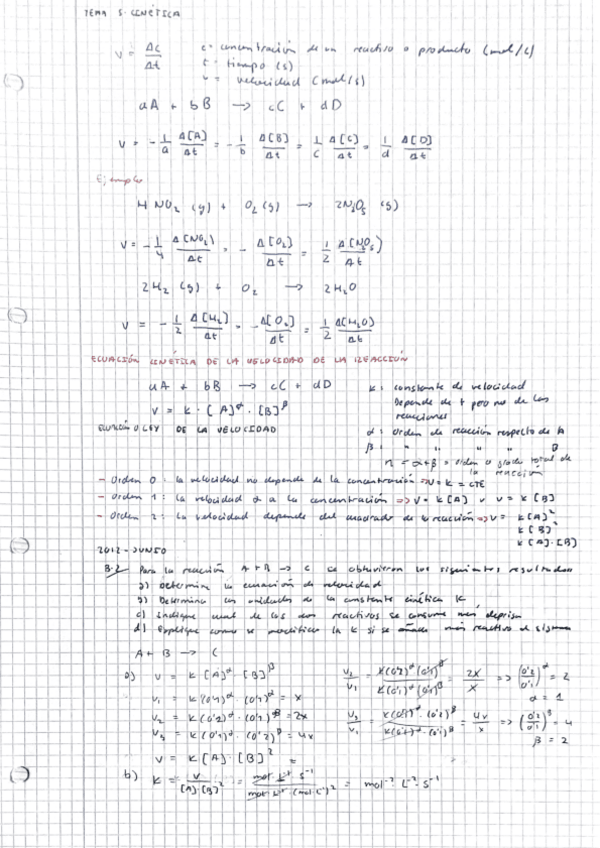 TEMA 5. CINÉTICA
v = Δc/Δt c = concentración de un reactivo o producto (mol/L)
t = tiempo (s)
v = velocidad (mol/s)
aA + bB → cC + dD
v = -1/a Δ[A]/Δt = -1/b Δ[B]/Δt = 1/c Δ[C]/Δt = 1/d Δ[D]/Δt
Ejemplo
4NO₂ (g) + O₂ (g) → 2N₂O₅ (g)
v = -1/4 Δ[NO₂]/Δt = - Δ[O₂]/Δt = 1/2 Δ[N₂O₅]/Δt
2H₂ (g) + O₂ → 2H₂O
v = -1/2 Δ[H₂]/Δt = -Δ[O₂]/Δt = 1/2 Δ[H₂O]/Δt
ECUACIÓN CINÉTICA DE LA VELOCIDAD DE LA REACCIÓN
aA + bB → cC + dD K: constante de velocidad
Depende de t pero no de las
reacciones
v = K · [A]^α · [B]^β
α: orden de reacción respecto de A
ECUACIÓN O LEY DE LA VELOCIDAD
β: " " " B
n = α+β = orden o grado total de
la reacción
- Orden 0: la velocidad no depende de la concentración => v = K = CTE
- Orden 1: la velocidad α a la concentración => v = K[A] v v = K[B]
- Orden 2: la velocidad depende del cuadrado de la reacción => v = K[A]²
K[B]²
K[A]·[B]
2012 - JUNIO
B.2 Para la reacción A+B → C se obtuvieron los siguientes resultados
a) Determine la ecuación de velocidad
b) Determine las unidades de la constante cinética K
c) Indique cual de los dos reactivos se consume más deprisa
d) Explique como se modifica la K si se añade más reactivo al sistema
A + B → C
a) v = K[A]^α · [B]^β v₂/v₁ = K(0'2)^α (0'1)^β / K(0'1)^α (0'1)^β = 2x/x => (0'2/0'1)^α = 2
α = 1
v₁ = K(0'1)^α · (0'1)^β = x
v₂ = K(0'2)^α · (0'1)^β = 2x v₃/v₁ = K(0'1)^α · (0'2)^β / K(0'1)^α · (0'1)^β = 4x/x => (0'2/0'1)^β = 4
β = 2
v₃ = K(0'1)^α · (0'2)^β = 4x
v = K[A]·[B]²
b) K = v/[A]·[B]² = mol·L⁻¹·s⁻¹ / mol·L⁻¹·(mol·L⁻¹)² = mol⁻²·L²·s⁻¹